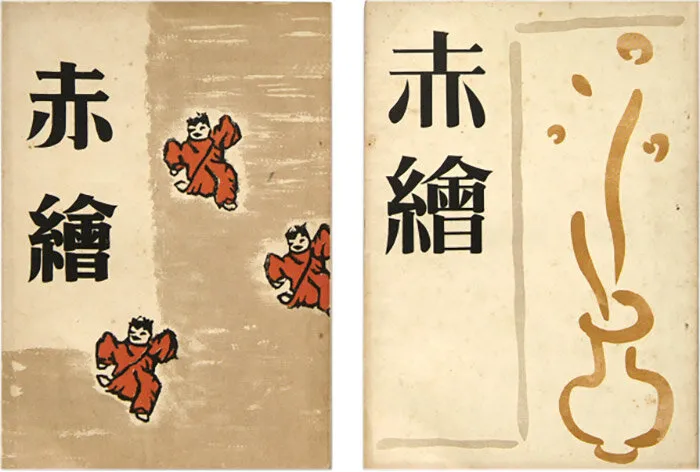 赤繪
赤繪